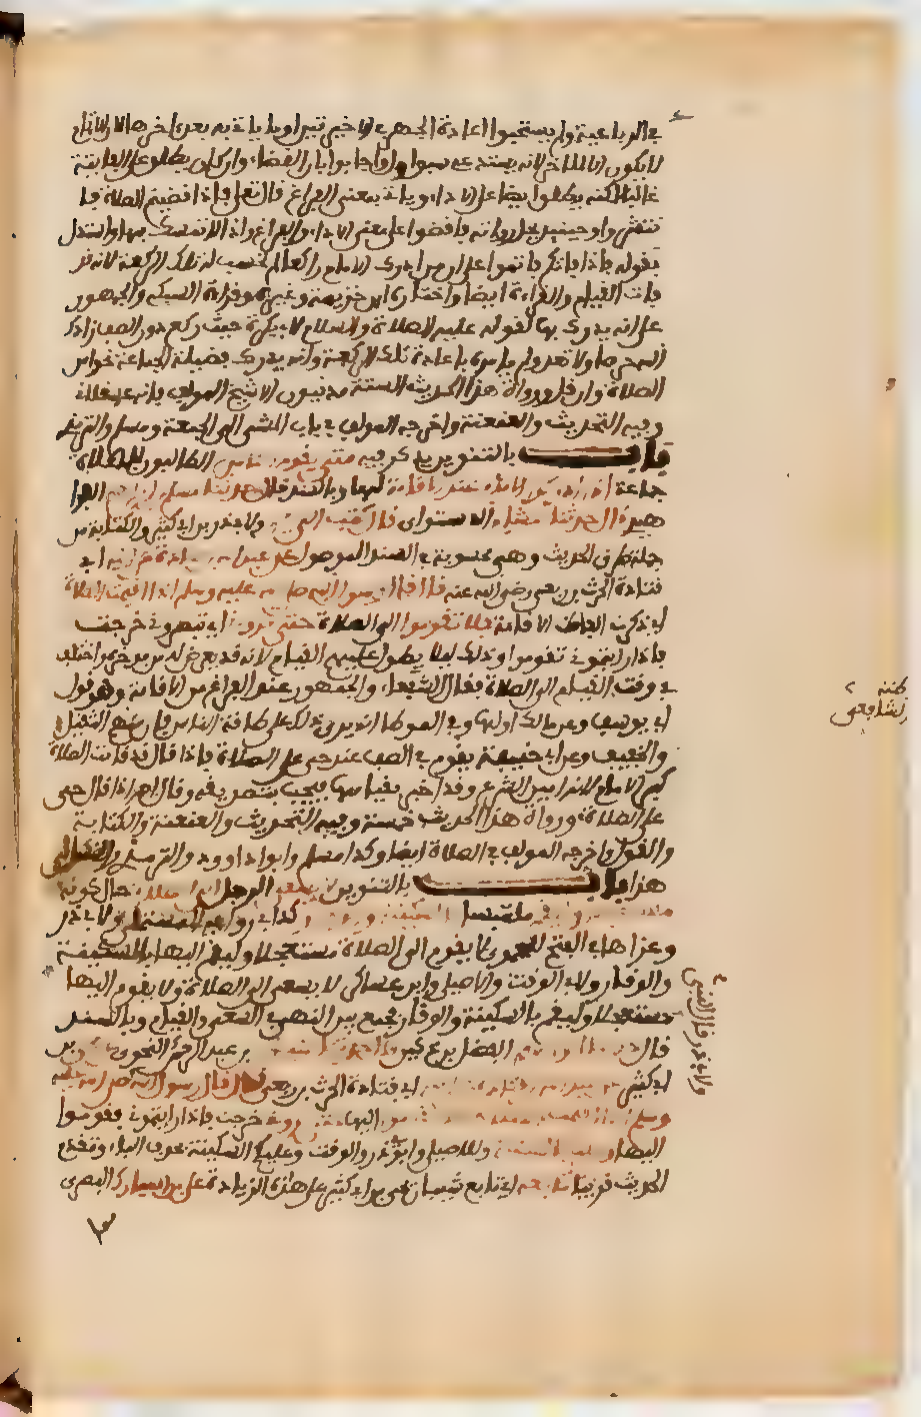 في الرباعية ولم يستحبوا اعادة الجهر في الاخيرتين او بان ما ياتي به بعد اخرها لان الاتمام
لا يكون الا للاخر لانه يستدعي سبق اول واجابوا بان القضاء وان كان يطلق على الفائتة
غالبا لكنه يطلق ايضا على الاداء وياتي بمعنى الفراغ قال تعالى فاذا قضيت الصلاة فا
نتشروا وحينئذ تحمل رواية فاقضوا على معنى الاداء والفراغ واذا لا تمسك بها واستدل
بقوله وما فاتكم فاتموا على ان من ادرك الامام راكعا لم تحسب له تلك الركعة لانه قد
فاته القيام والقراءة ايضا واختاره ابن خزيمة وغيره وقواه السبكي والجمهور
على انه يدرك بها لقوله عليه الصلاة والسلام لابي بكرة حيث ركع دون الصف زادك
الله حرصا ولا تعد ولم يامره باعادة تلك الركعة وانه يدرك فضيلة الجماعة بجزء من
الصلاة وان قل ورواة هذا الحديث الستة مدنيون الا شيخ المؤلف فانه عسقلاني
وفيه التحديث والعنعنة واخرجه المولف في باب المشي الى الجمعة ومسلم والترمذي
باب بالتنوين يذكر فيه متى يقوم الناس الطالبون للصلاة
جماعة اذا راوا الامام عند الاقامة لها وبالسند قال حدثنا مسلم بن ابراهيم الفرا
هيدي قال حدثنا هشام الدستوائي قال كتب الي ولابي ذر يحيى بن ابي كثير والكتابة من
جملة طرق الحديث وهي محسوبة في المسند الموصول عن عبد الله بن ابي قتادة عن ابيه ابي
قتادة الحرث بن ربعي رضي الله عنه قال قال رسول الله صلى الله عليه وسلم اذا اقيمت الصلاة
اي ذكرت الفاظ الاقامة فلا تقوموا الى الصلاة حتى تروني اي تبصروني خرجت
فاذا رايتموني تقوموا وذلك ليلا يطول عليهم القيام لانه قد يعرض له ما يوخره واختلف
في وقت القيام الى الصلاة فقال الشافعي والجمهور عند الفراغ من الاقامة وهو قول
ابي يوسف وعن مالك اولها وفي الموطا انه يرى ذلك على طاقة الناس فان منهم الثقيل
والخفيف وعن ابي حنيفة يقوم في الصف عند حي على الصلاة فاذا قال قد قامت الصلاة
كبر الامام لانه امين الشرع وقد اخبر بقيامها فيجب تصديقه وقال احمد اذا قال حي
على الصلاة ورواة هذا الحديث خمسة وفيه التحديث والعنعنة والكتابة
والقول واخرجه المولف في الصلاة ايضا وكذا مسلم وابو داوود والترمذي والنسائي
هذا باب بالتنوين لا يسعى الرجل الى الصلاة حال كونه
مستعجلا وليقم ملتبسا بالسكينة والوقار كذا في رواية المستملي ولابي ذر
وعزاها في الفتح للحموي لا يقوم الى الصلاة مستعجلا وليقم اليها بالسكينة
والوقار ولابي الوقت والاصيلي وابن عساكر لا يسعى الى الصلاة ولا يقوم اليها
مستعجلا وليقم بالسكينة والوقار فجمع بين النهي عن السعي والقيام وبالسند
قال حدثنا ابو نعيم الفضل بن دكين قال حدثنا شيبان بن عبد الرحمن النحوي عن يحيى بن
ابي كثير عن عبد الله بن ابي قتادة عن ابيه ابي قتادة الحرث بن ربعي قال قال رسول الله صلى الله عليه
وسلم اذا اقيمت الصلاة فلا تقوموا اليها حتى تروني خرجت فاذا رايتموني فقوموا
اليها وعليكم بالسكينة وللاصيلي وابي ذر والوقت وعليكم السكينة بحذف الباء وتقدم
الحديث قريبا تابعه اي تابع شيبان عن يحيى بن ابي كثير على هذه الزيادة علي بن المبارك البصري
كتبه
الشافعي
ولابي ذر قال النبي